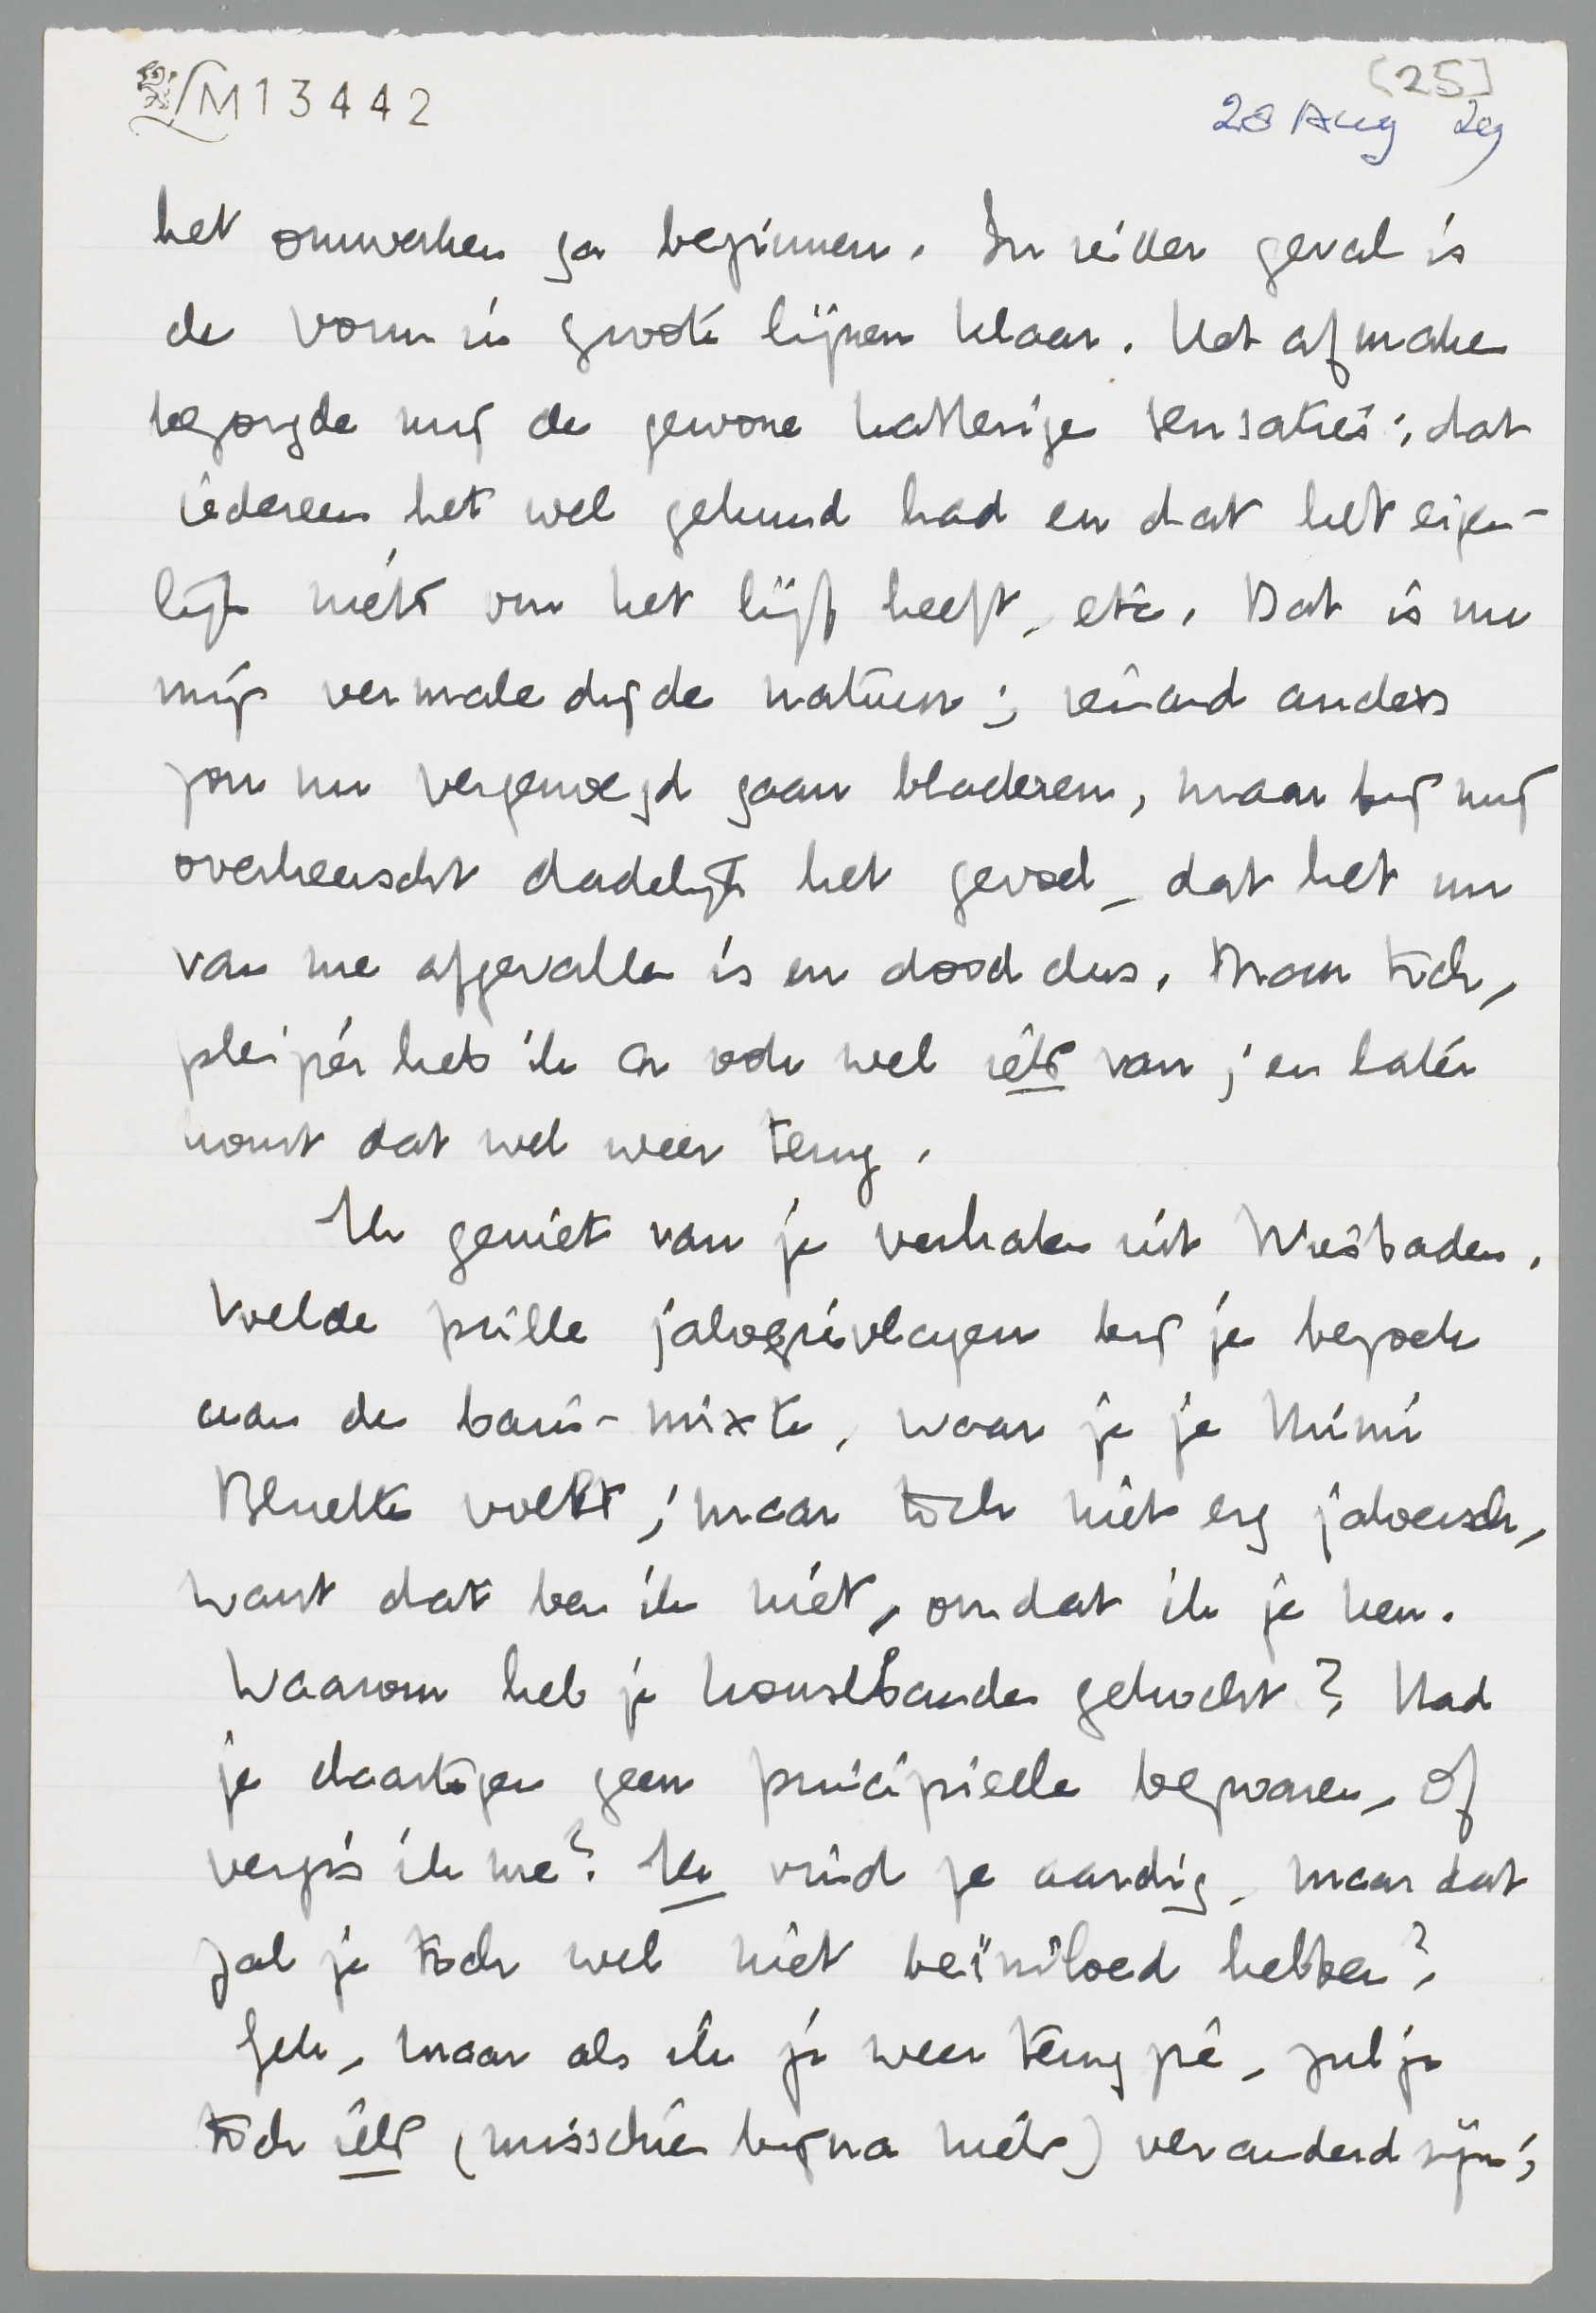 LM13442
[25]
28 Aug 29
het omwerken ga beginnen. In ieder geval is
de vorm in groote lijnen klaar. Het afmaken
bezorgde mij de gewone katterige sensaties; dat
iedereen het wel gekund had en dat het eigen-
lijk niets om het lijf heeft, etc. Dat is nu
mijn vermaledijde natuur; iemand anders
zou nu vergenoegd gaan bladeren, maar bij mij
overheerscht dadelijk het gevoel, dat het nu
van me afgevallen is en dood dus. Maar toch,
plezier heb ik er ook wel iets van; en later
komt dat wel weer terug.
Ik geniet van je verhalen uit Wiesbaden.
Voelde prille jaloezievlagen bij je bezoek
aan de bains-mixte, waar je je Mimi
Bluette voelt; maar toch niet erg jaloersch,
want dat ben ik niet, omdat ik je ken.
Waarom heb je kousebanden gekocht? Had
je daartegen geen principieele bezwaren, of
vergis ik me? Ik vind ze aardig, maar dat
zal je toch wel niet beïnvloed hebben?
Gek, maar als ik je weer terugzie, zul je
toch iets (misschien bijna niets) veranderd zijn;